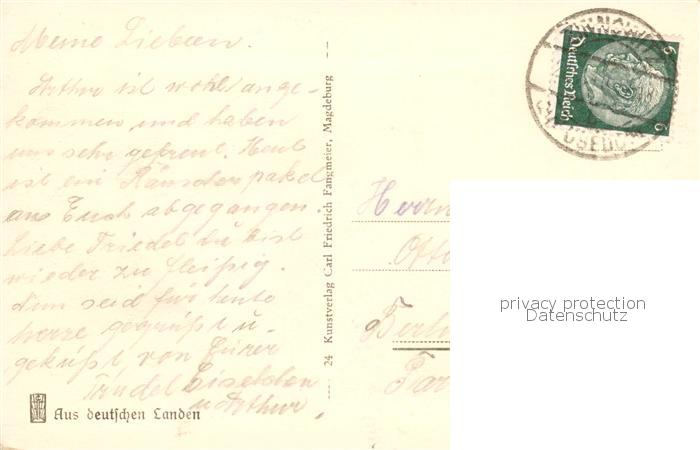 Meine Lieben.
Arthur ist wohl ange-
kommen, und haben
uns sehr gefreut. Heut
ist ein Räucherpaket
an Euch abgegangen.
Liebe Friedel du bist
wieder zu fleißig.
Nun seid für heute
herzl gegrüßt u.
geküßt, von Eurer
Trudel Lieselchen
u. Arthur.
Aus deutschen Landen
24 Kunstverlag Carl Friedrich Fangmeier, Magdeburg
Deutsches Reich
6 6
ZINNOWITZ
USEDOM
Herrn
Otto
Berlin
privacy protection
Datenschutz